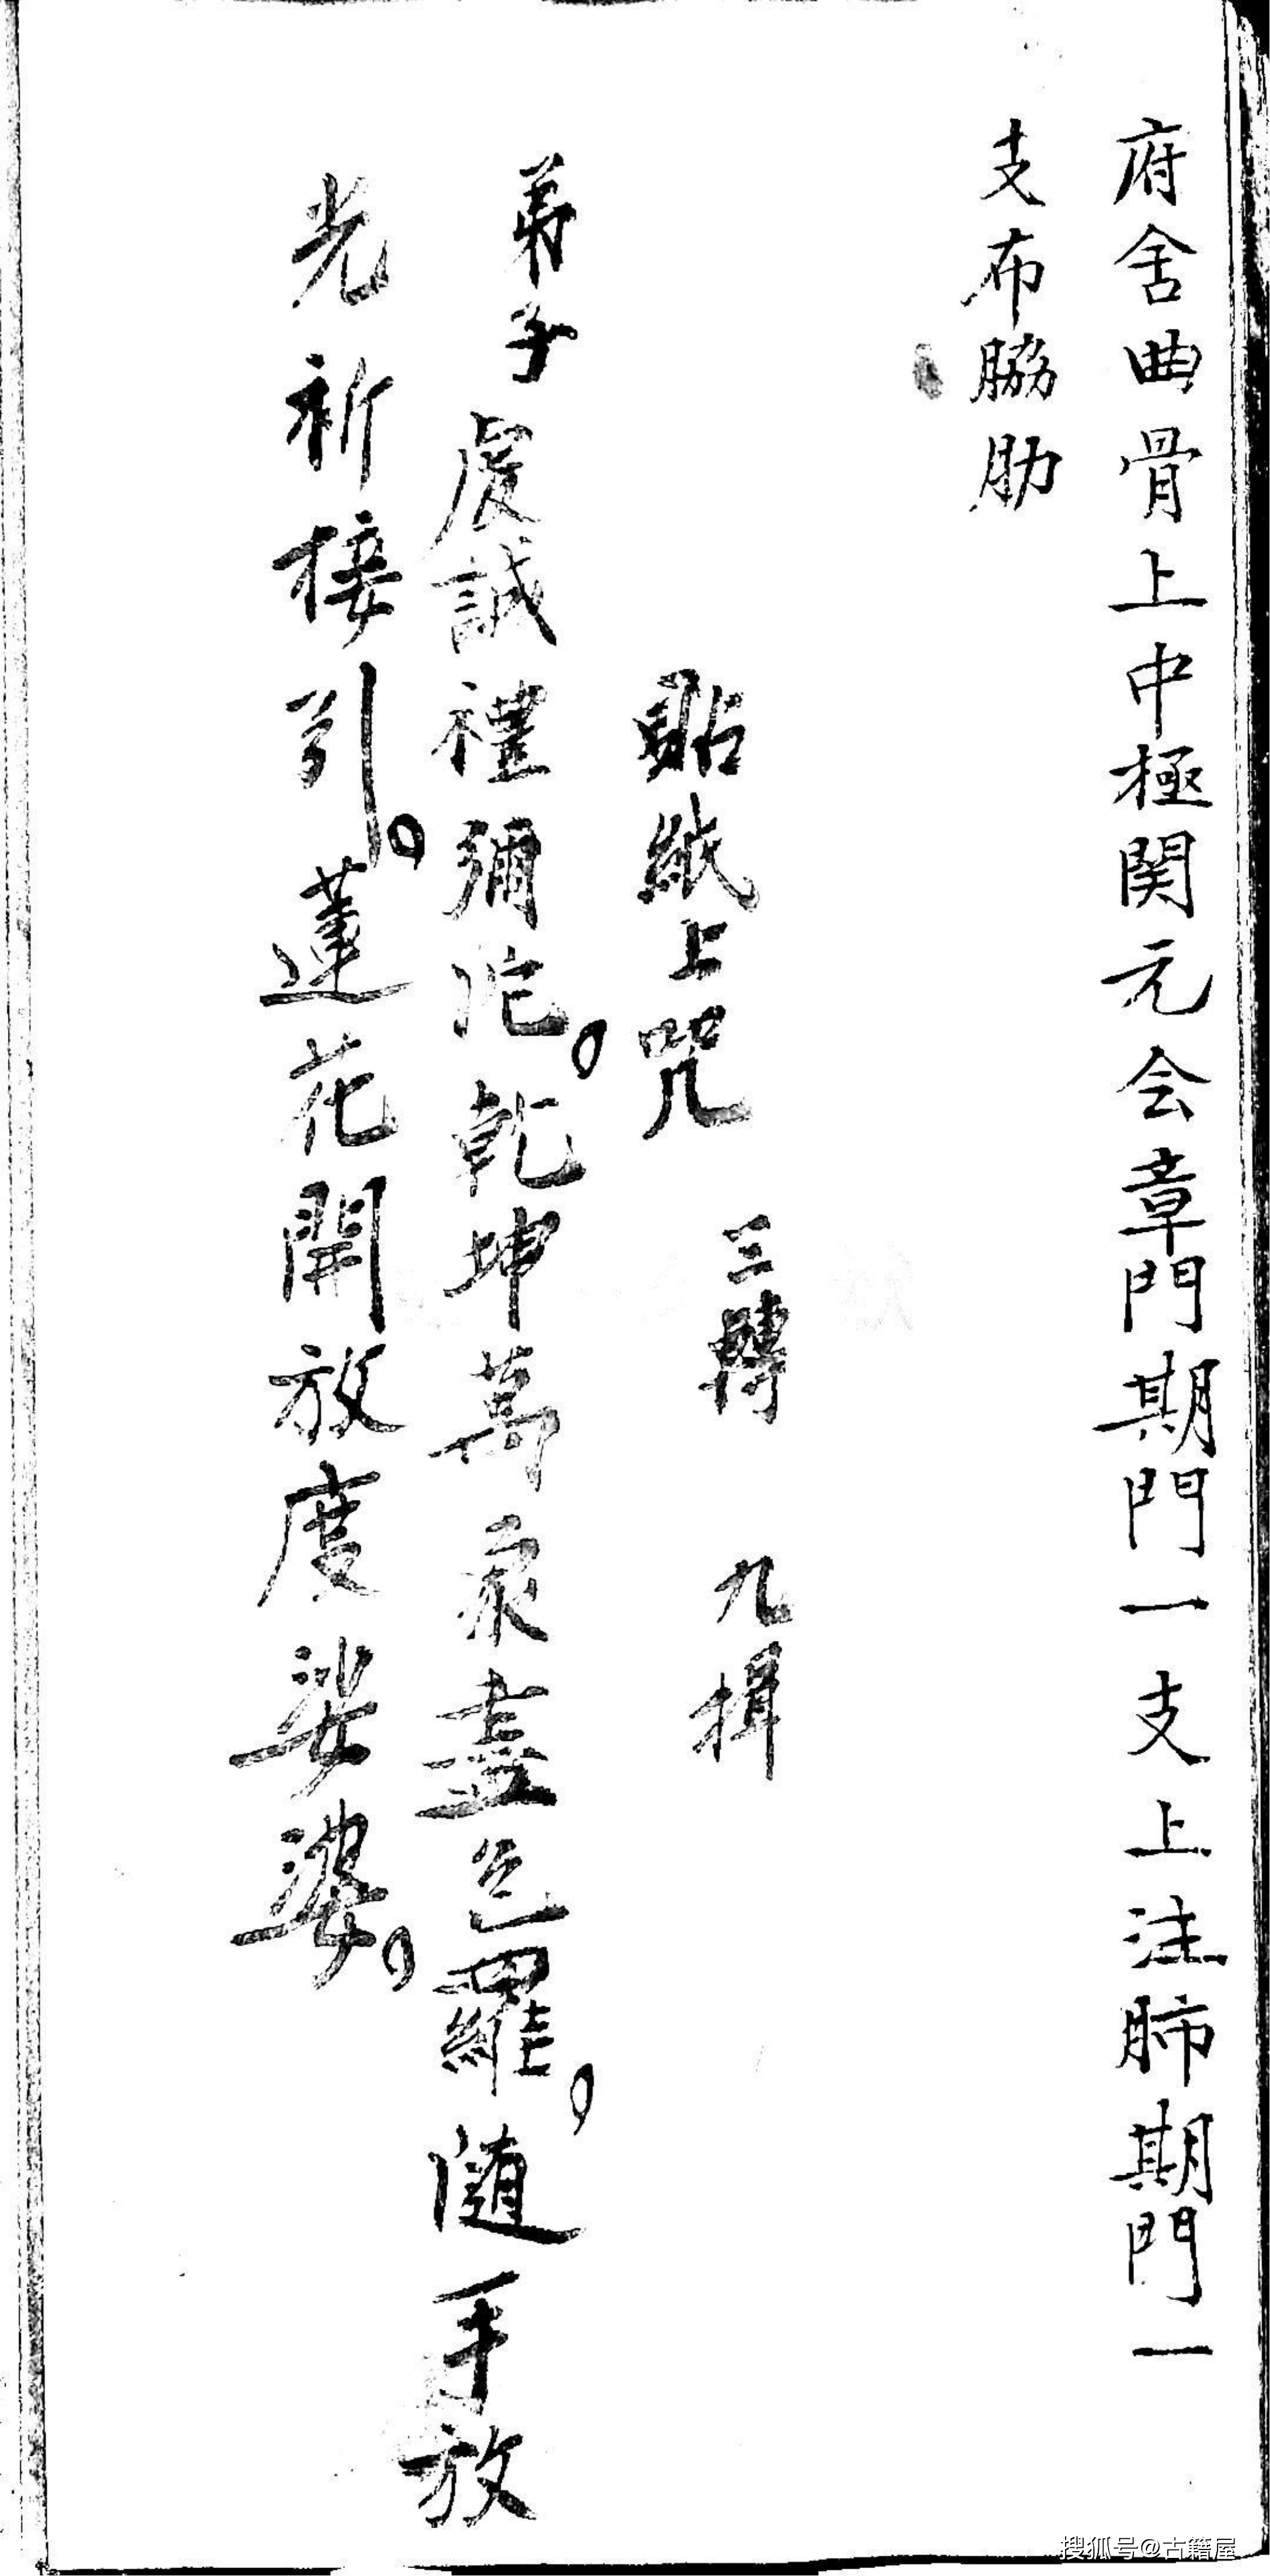 府舍曲骨上中極関元会章門期門一支上注肺期門一
支布脇肋
貼紙上咒 三轉 九揖
弟子虔誠禮彌陀。乾坤萬象盡包羅。隨手放
光祈接引。蓮花開放度娑婆。
搜狐号@古籍屋